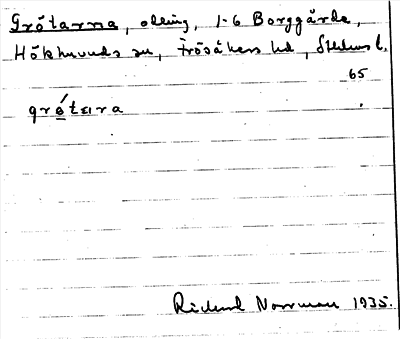 Grötarna, odling, 1-6 Borggårde,
Hökhuvuds sn, Frösåkers hd, Sthlms l.
65
grö́tɛɩra
Rickard Norrman 1935.